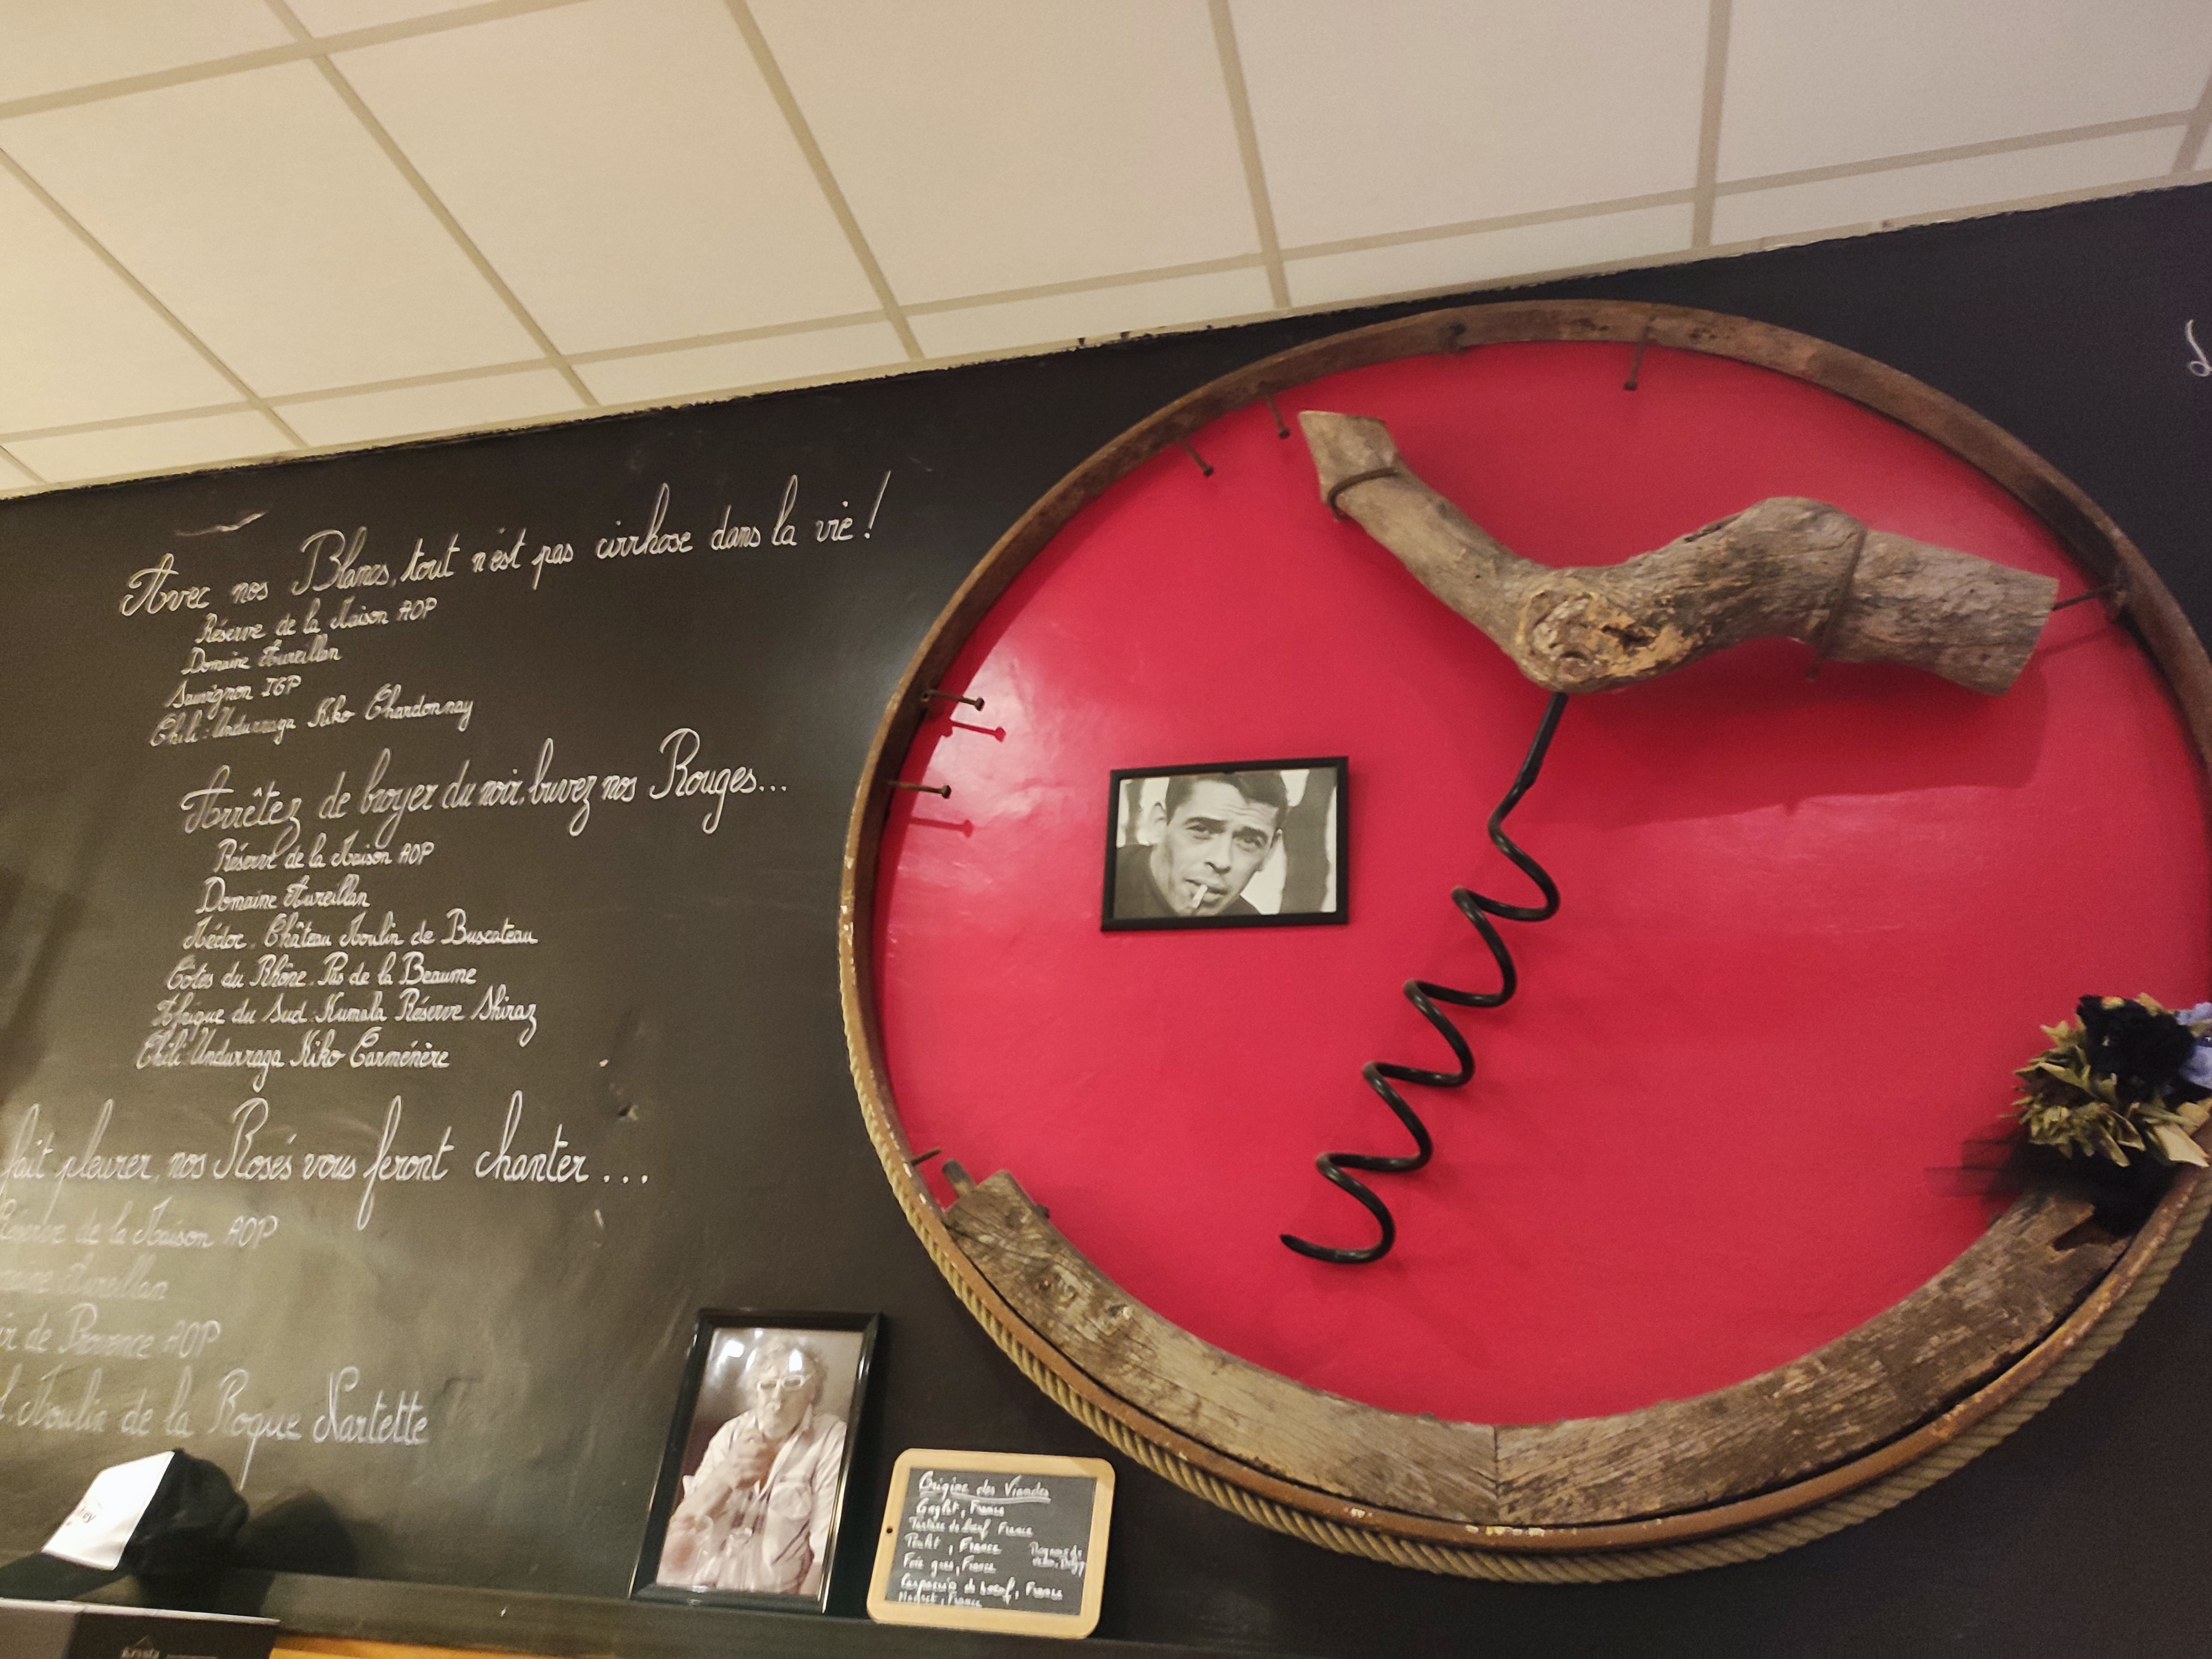 Avec nos Blancs, tout n'est pas cirrhose dans la vie !
Réserve de la Maison AOP
Domaine Aureillan
Sauvignon IGP
Chili : Undurraga Kiko Chardonnay
Arrêtez de broyer du noir, buvez nos Rouges...
Réserve de la Maison AOP
Domaine Aureillan
Médoc. Château Moulin de Buscateau
Côtes du Rhône. Pas de la Beaume
Afrique du Sud : Kumala Réserve Shiraz
Chili : Undurraga Kiko Carménère
fait pleurer, nos Rosés vous feront chanter...
Réserve de la Maison AOP
Aureillan
de Provence AOP
Moulin de la Roque Nartette
Origine des Viandes
Onglet, France
Tartare de bœuf, France
Poulet, France
Foie gras, France
Carpaccio de boeuf, France
France